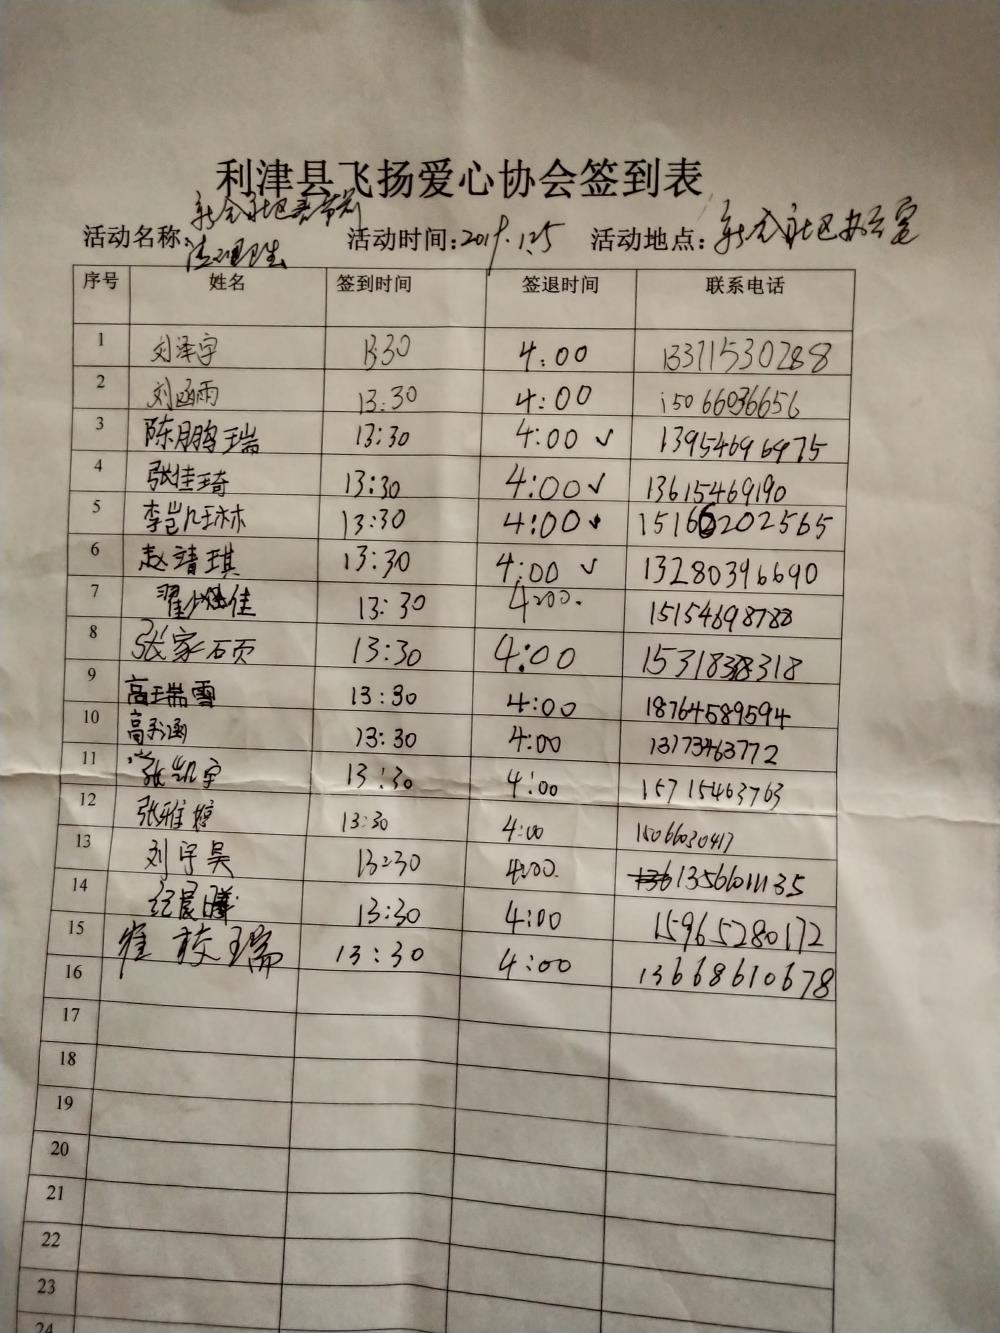 利津县飞扬爱心协会签到表
活动名称: 活动时间:2019.1.25 活动地点:办公室
清理卫生
序号 姓名 签到时间 签退时间 联系电话
1 刘泽宇 13:30 4:00 13311530288
2 刘函雨 13:30 4:00 15066036656
3 陈鹏瑞 13:30 4:00 ✓ 13954696975
4 张佳琦 13:30 4:00 ✓ 13615469190
5 李岂凡琳 13:30 4:00 ✓ 15166202565
6 赵靖琪 13:30 4:00 ✓ 13280396690
7 翟少佳 13:30 4:00. 15154698788
8 张家硕 13:30 4:00
9 高瑞雪 13:30 4:00 18764589594
10 高涵 13:30 4:00 13173463772
11 张凯宇 13:30 4:00 15715463763
12 张雅婷 13:30 4:00 15066030417
13 刘宇昊 13:30 4:00.
14 纪晨曦 13:30 4:00 15965280172
15 崔校瑞 13:30 4:00 13668610678
16
17
18
19
20
21
22
23
24